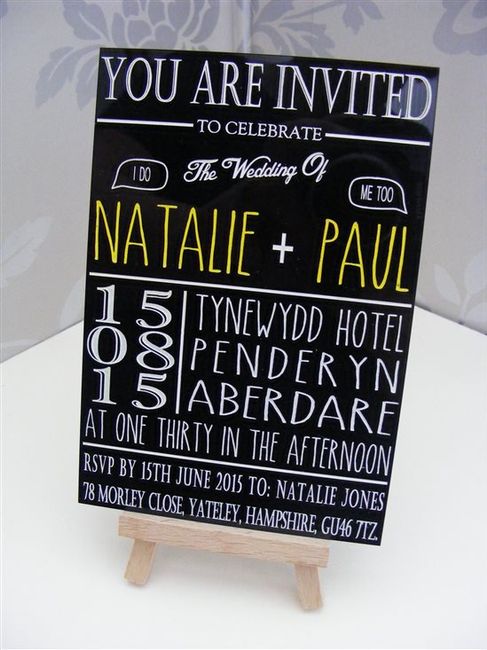 YOU ARE INVITED
TO CELEBRATE
I DO
The Wedding Of
ME TOO
NATALIE + PAUL
15
08
15
TYNEWYDD HOTEL
PENDERYN
ABERDARE
AT ONE THIRTY IN THE AFTERNOON
RSVP BY 15TH JUNE 2015 TO: NATALIE JONES
78 MORLEY CLOSE, YATELEY, HAMPSHIRE, GU46 7TZ.